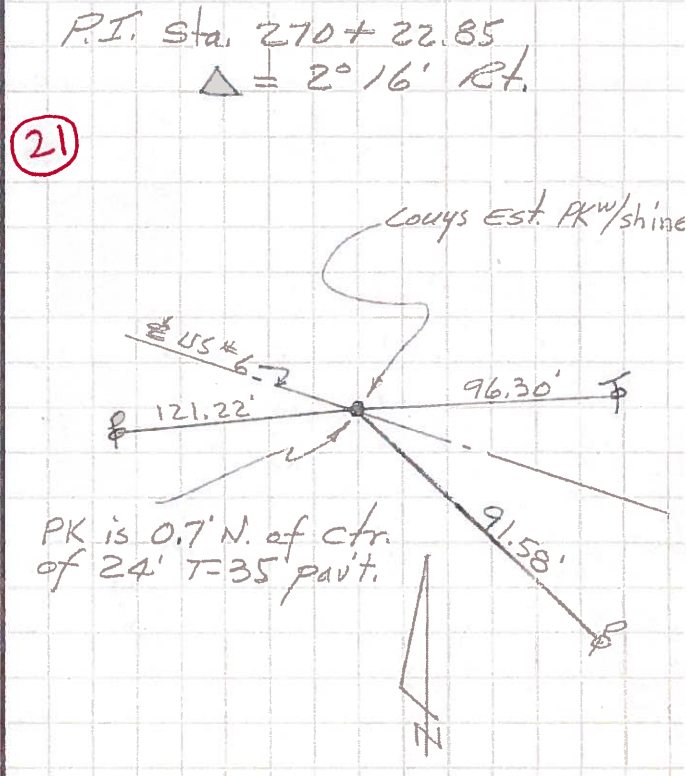 P.I. Sta. 270+22.85
△ = 2° 16' Rt.
21
Est. PK w/shine
℄ US #6
121.22'
96.30'
91.58'
PK is 0.7' N. of ctr.
of 24' T=35' pav't.
N